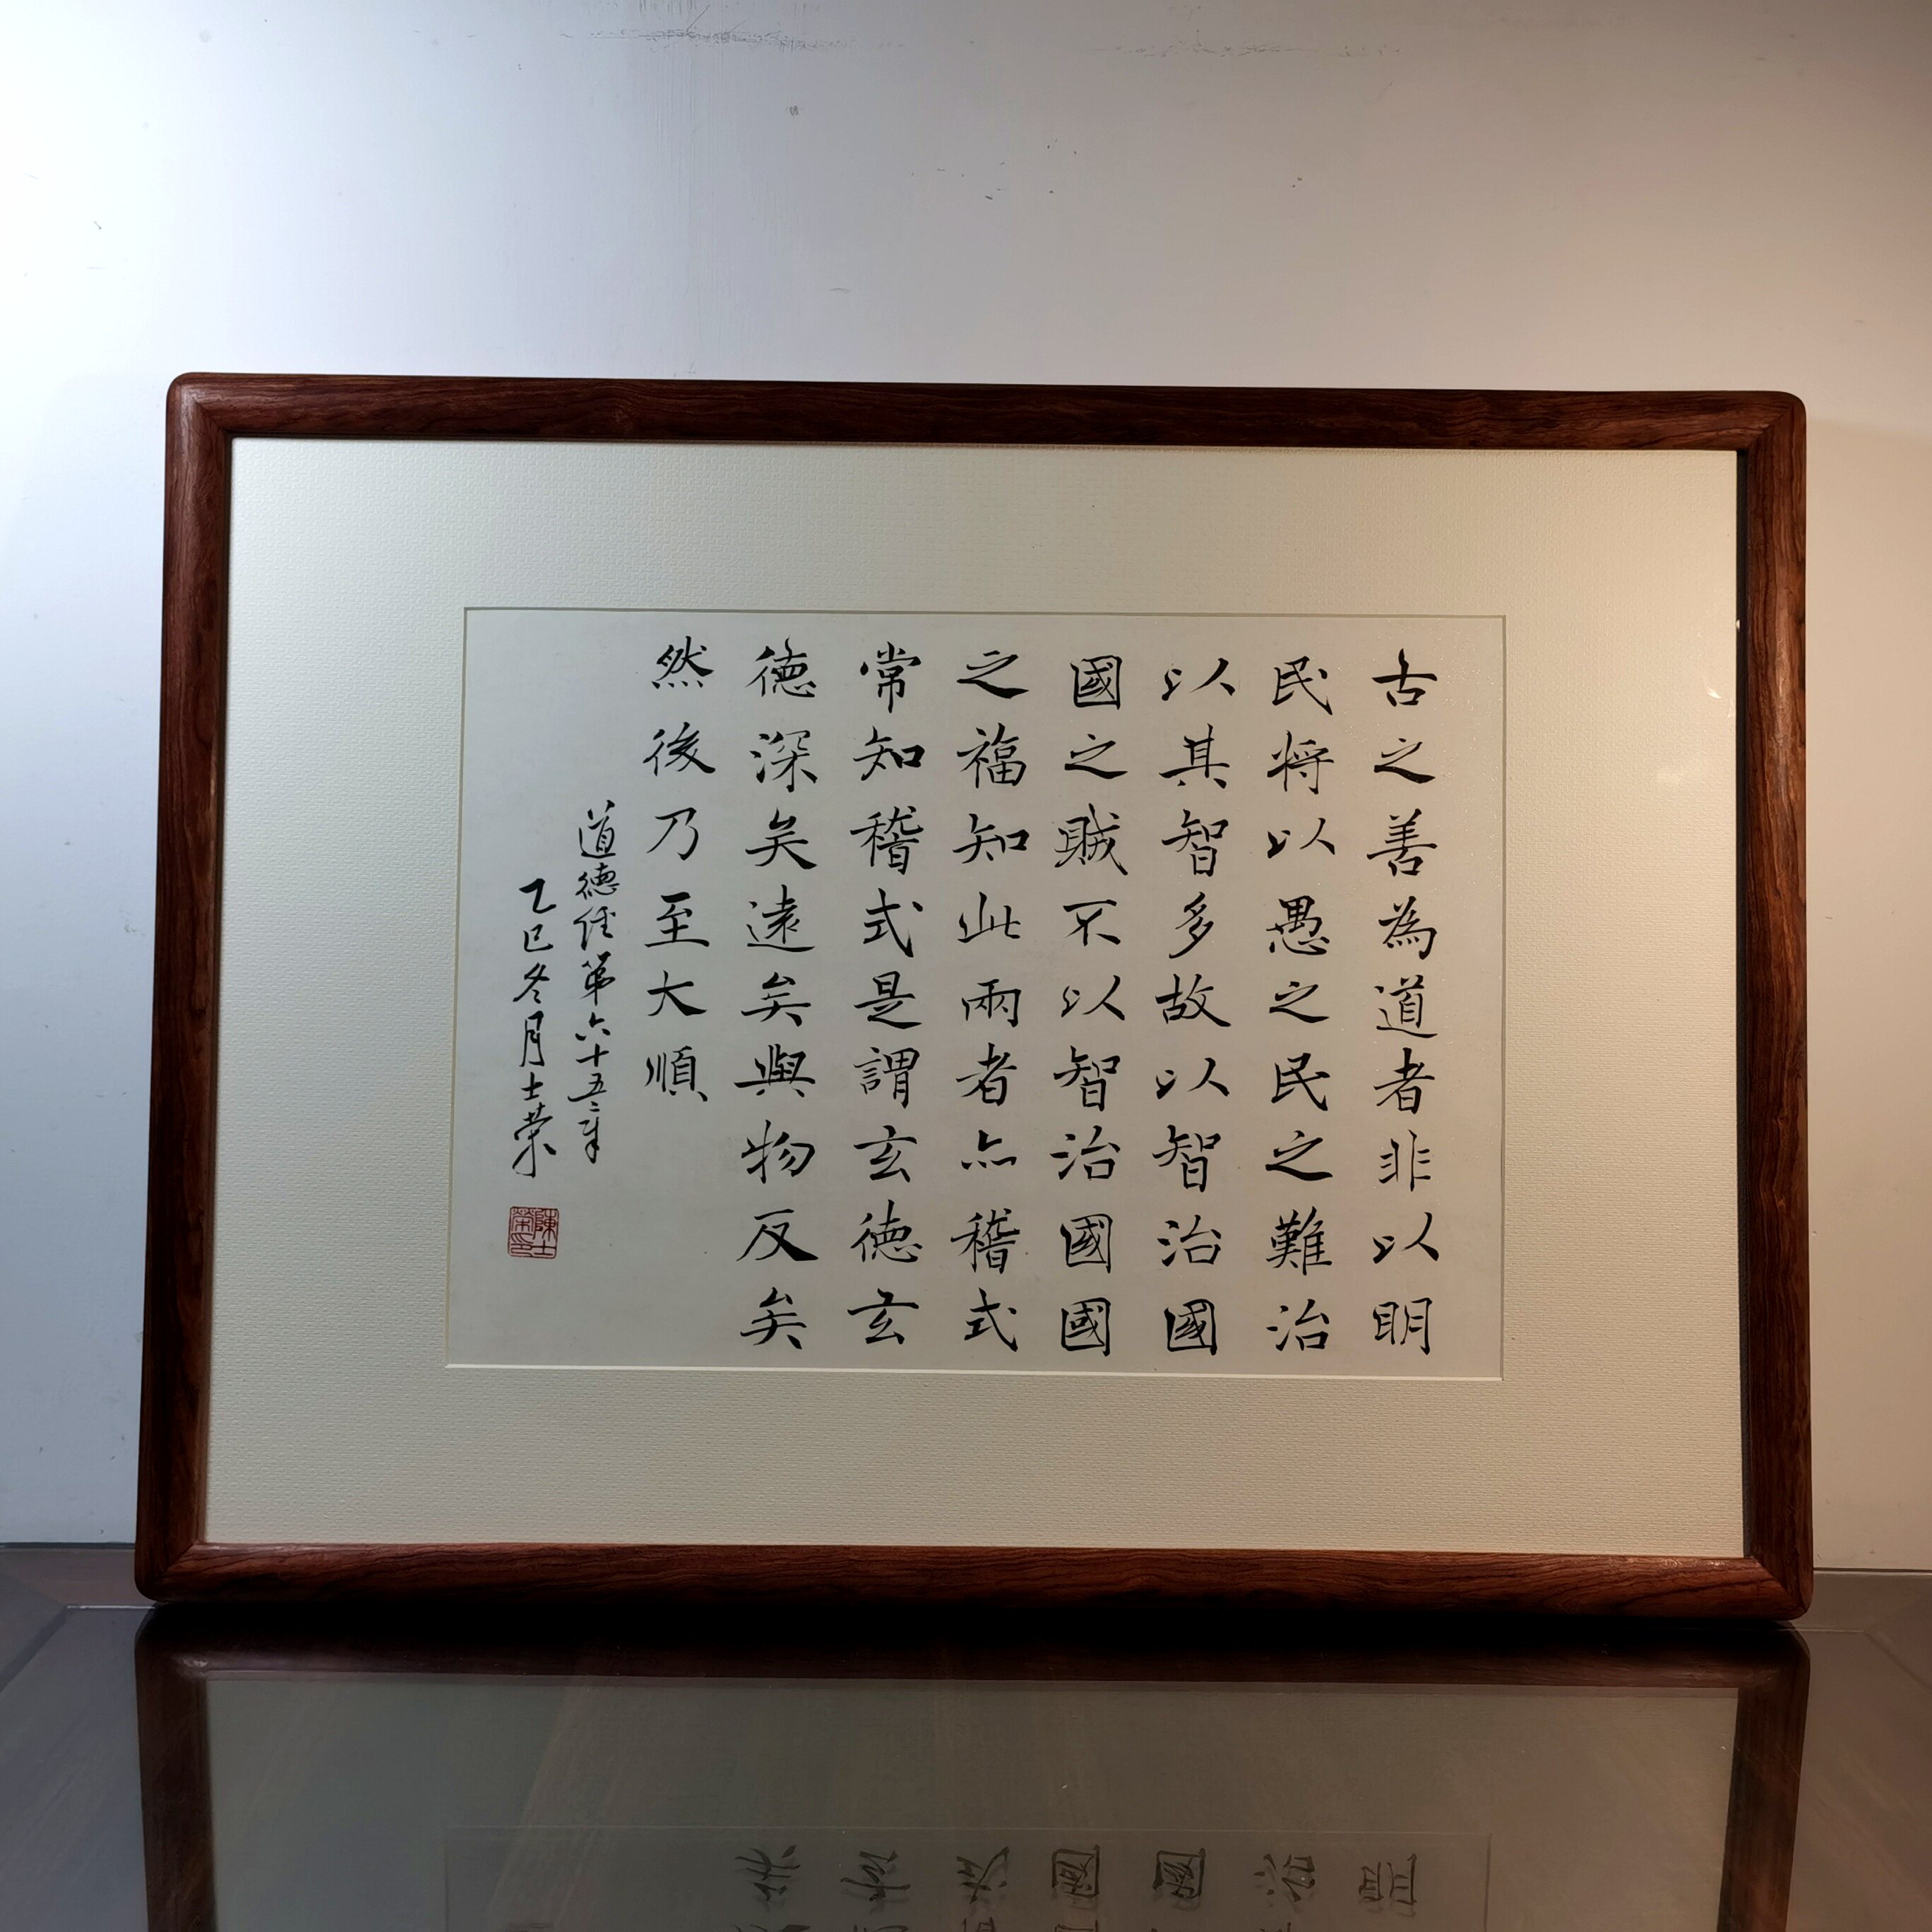 古之善為道者非以明
民将以愚之民之難治
以其智多故以智治國
國之賊不以智治國國
之福知此兩者亦稽式
常知稽式是謂玄德玄
德深矣遠矣與物反矣
然後乃至大順
道德經第六十五章
乙巳冬月士荣
陳士榮印